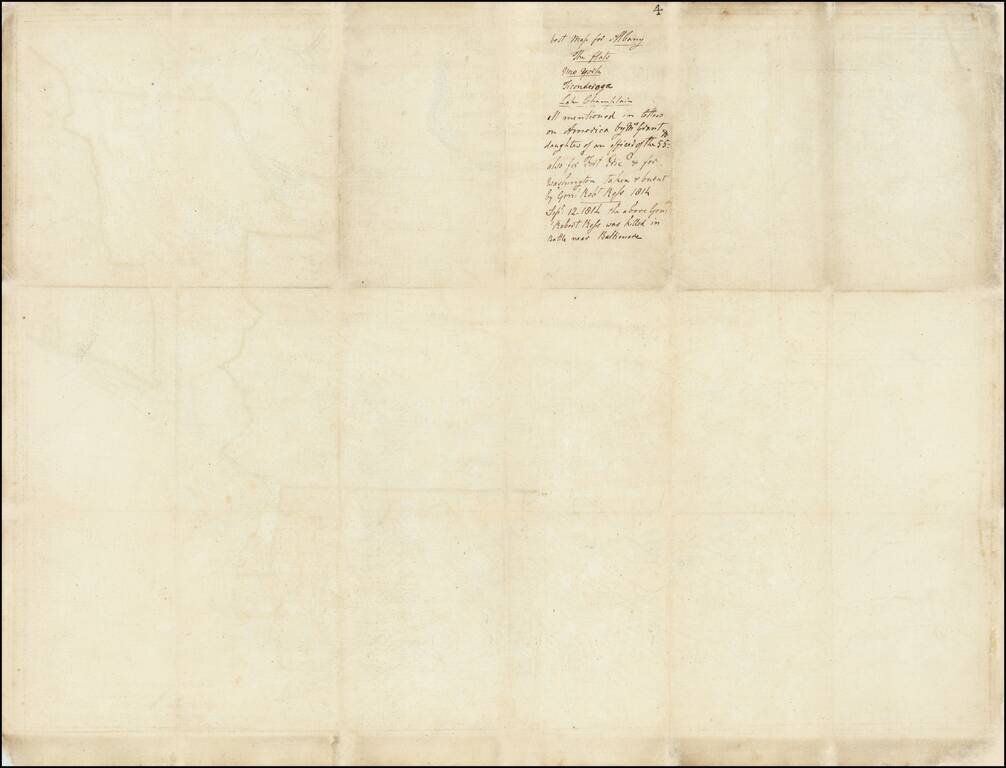 4
best Map for Albany
The flats
New York
Ticonderoga
Lake Champlain
all mentioned in letters
on America by Mrs Grant
daughter of an officer of the 55th
also for Fort &c & for
Washington taken & burnt
by Genl Robt Ross 1814
Sepr 12 1814 the above Genl
Robert Ross was killed in
Battle near Baltimore